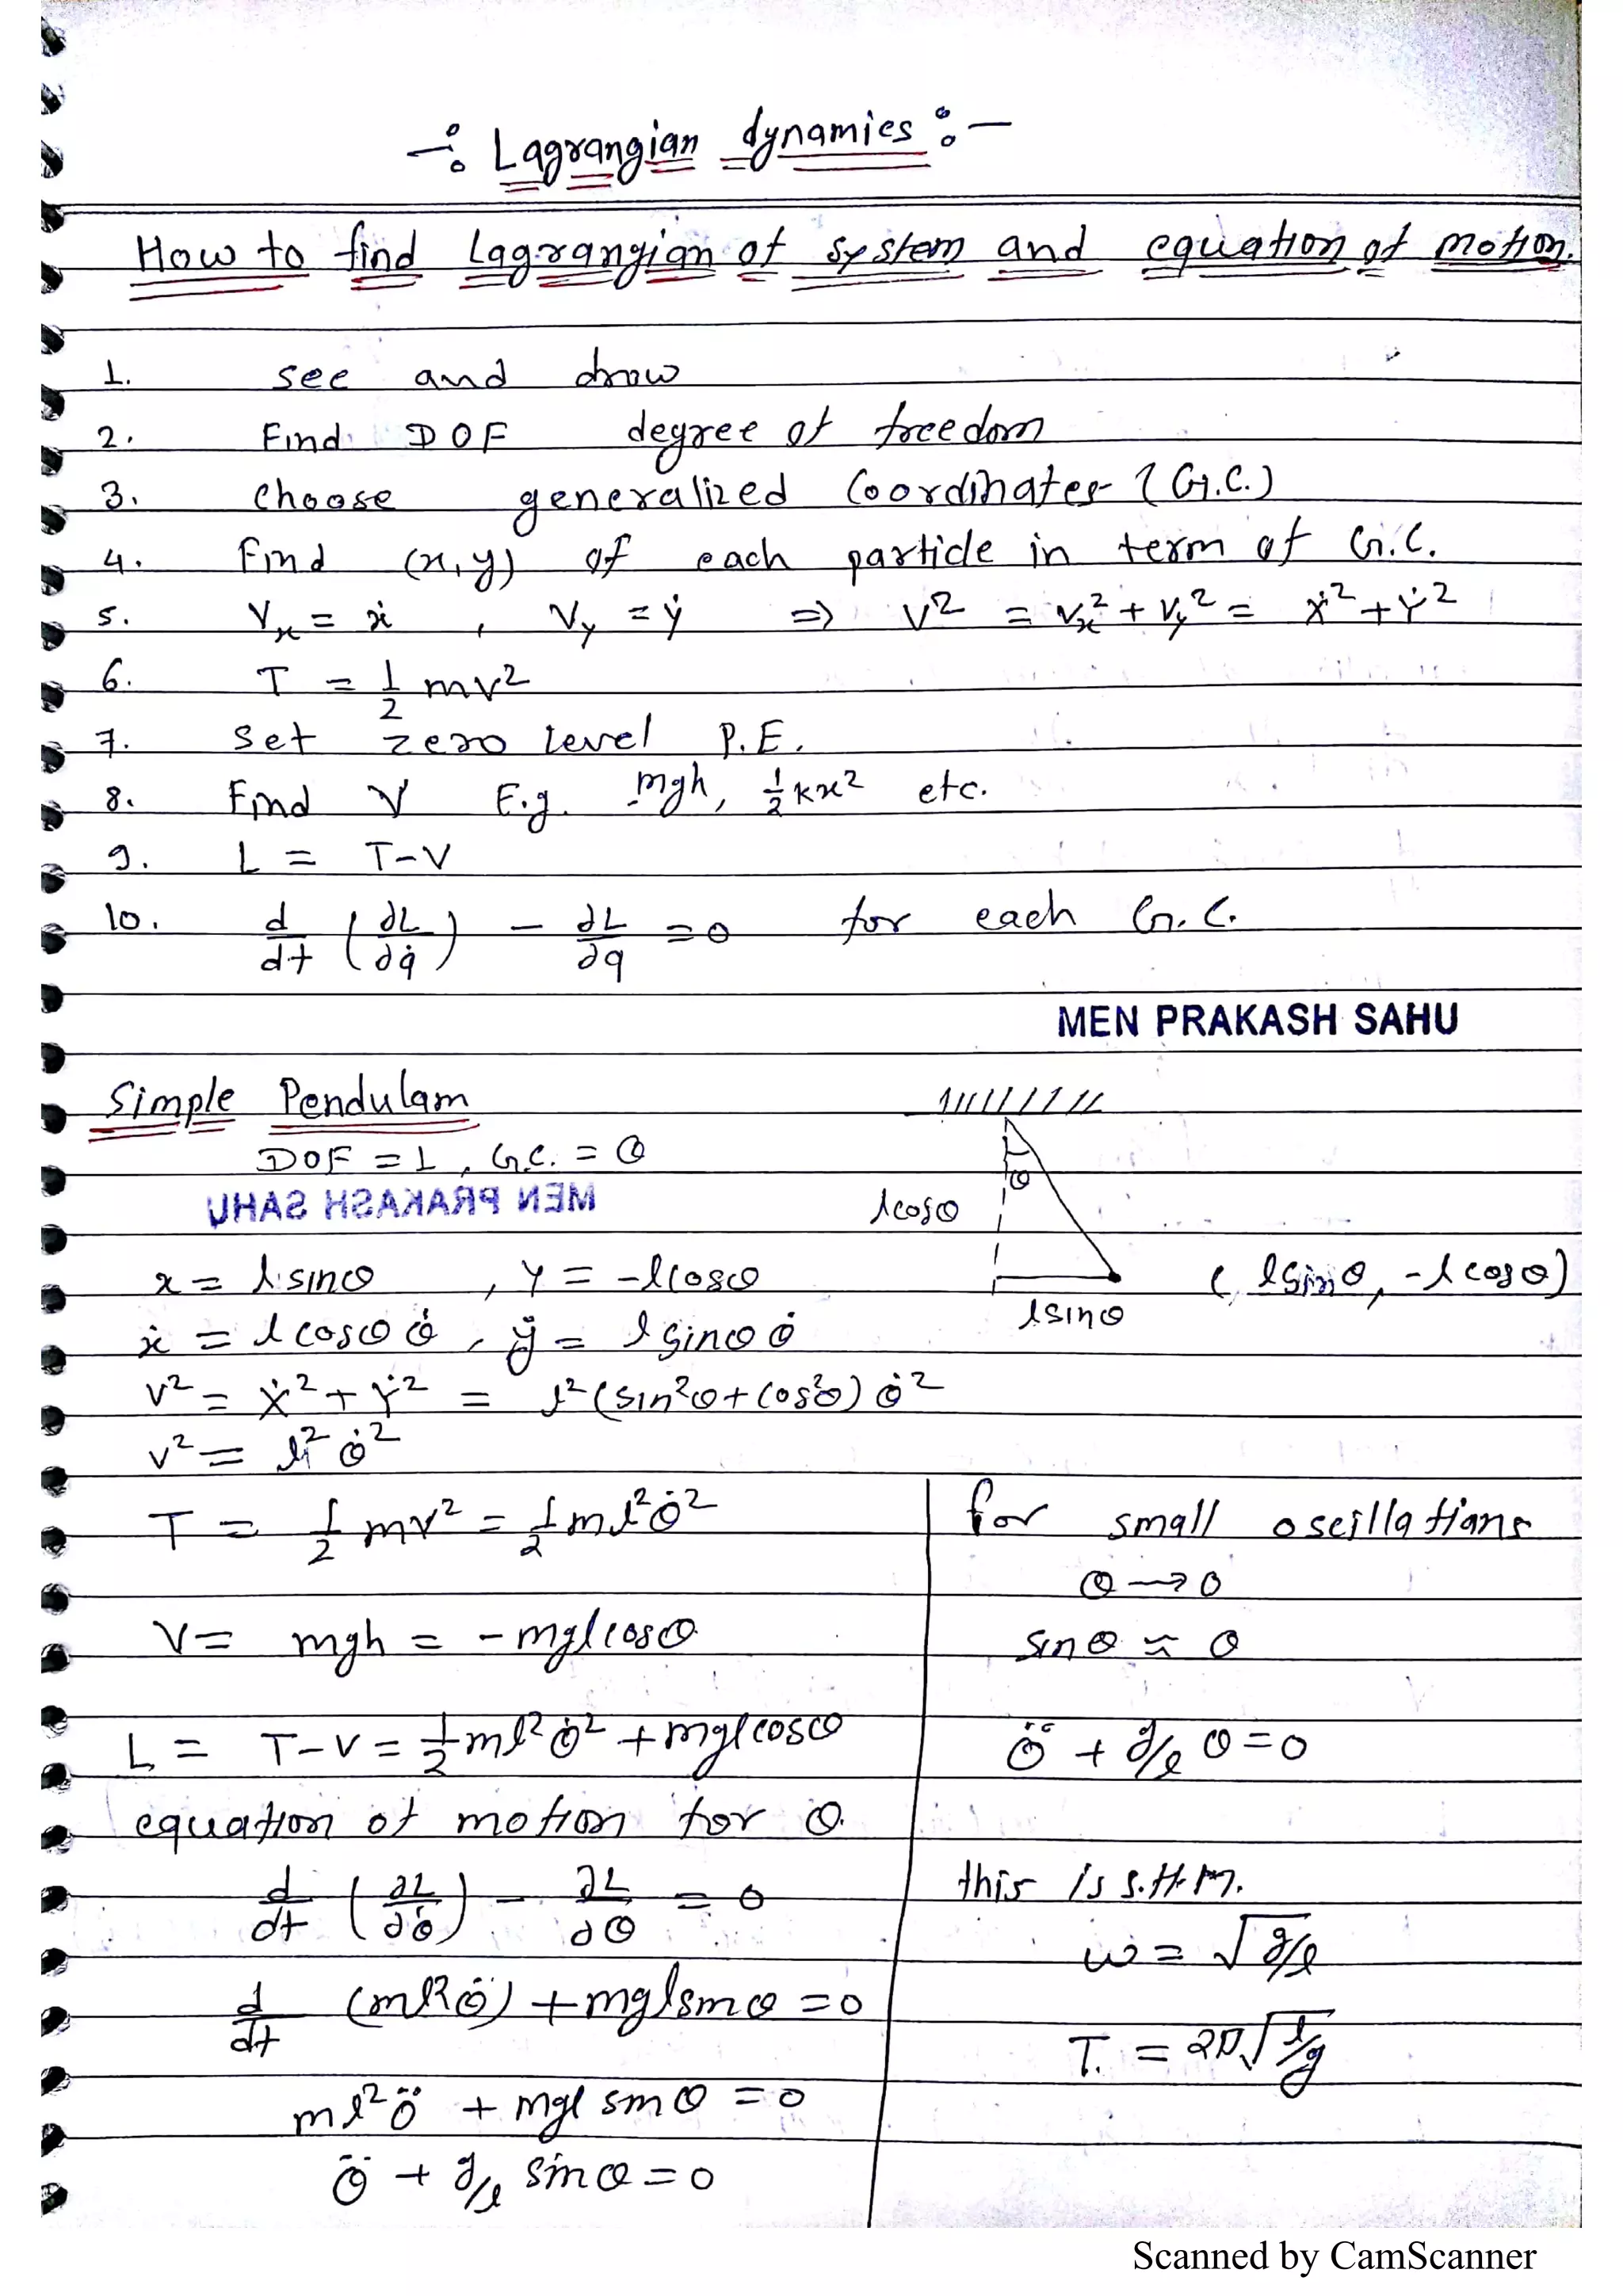 -: Lagrangian dynamics :-
How to find Lagrangian of system and equation of motion.
1. see and draw
2. Find DOF degree of freedom
3. choose generalized Coordinates (G.C.)
4. Find (x,y) of each particle in term of G.C.
5. Vx = ẋ , Vy = ẏ => V² = Vx² + Vy² = Ẋ² + Ẏ²
6. T = 1/2 mv²
7. Set zero level P.E.
8. Find V E.g. mgh, 1/2 kx² etc.
9. L = T-V
10. d/dt (∂L/∂q̇) - ∂L/∂q = 0 for each G.C.
MEN PRAKASH SAHU
Simple Pendulam
DOF = 1 , G.C. = θ
θ
MEN PRAKASH SAHU
lcosθ
x = l sinθ , Y = -lcosθ
(lsinθ, -lcosθ)
lsinθ
ẋ = l cosθ θ̇ , ẏ = l sinθ θ̇
v² = Ẋ² + Ẏ² = l² (sin²θ + cos²θ) θ̇²
v² = l² θ̇²
T = 1/2 mv² = 1/2 ml²θ̇²
V = mgh = -mglcosθ
L = T-V = 1/2 ml²θ̇² + mglcosθ
equation of motion for θ.
d/dt (∂L/∂θ̇) - ∂L/∂θ = 0
d/dt (ml²θ̇) + mglsinθ = 0
ml²θ̈ + mgl sinθ = 0
θ̈ + g/l sinθ = 0
for small oscillations
θ → 0
sinθ ≈ θ
θ̈ + g/l θ = 0
this is S.H.M.
ω = √g/l
T. = 2π√l/g
Scanned by CamScanner